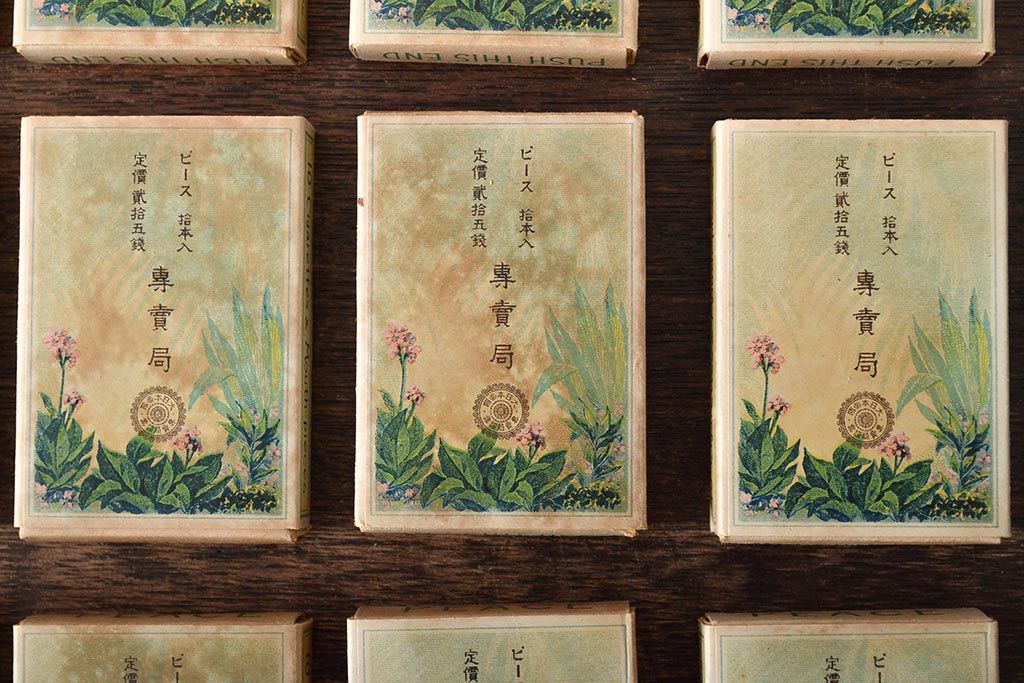 PUSH THIS END
PUSH THIS END
PUSH THIS END
ピース 拾本入
定價 貳拾五錢
專賣局
ピース 拾本入
定價 貳拾五錢
專賣局
ピース 拾本入
定價 貳拾五錢
專賣局
PEACE
PEACE
ピース
定價
ピース
定價
ピース
定價